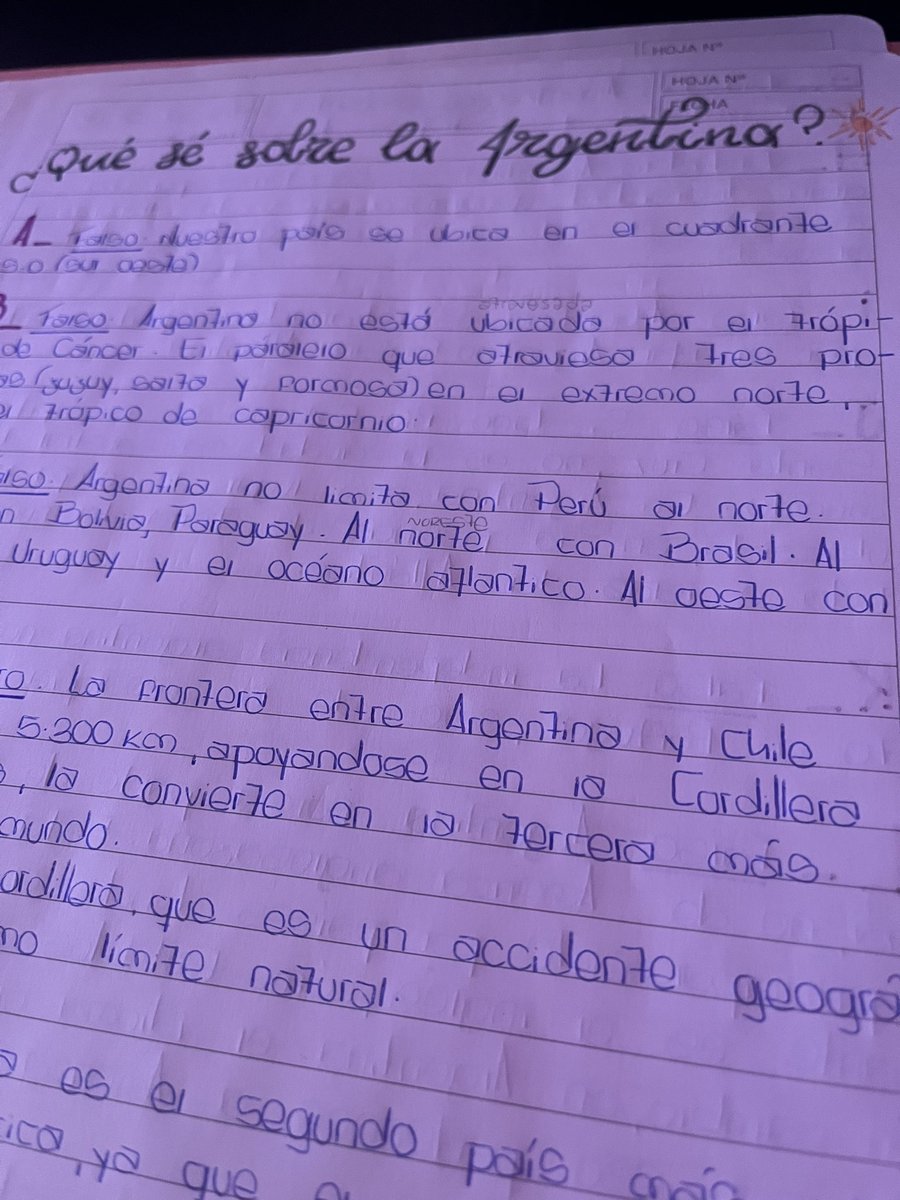 HOJA Nº
HOJA Nº
¿Qué sé sobre la Argentina?
A- Falso. Nuestro país se ubica en el cuadrante
S.O (sur oeste)
atravesada
B- Falso. Argentina no está ubicada por el trópi-
de Cáncer. El paralelo que atraviesa tres pro-
(Jujuy, Salta y Formosa) en el extremo norte,
trópico de capricornio.
Argentina no limita con Perú al norte.
NORESTE
Bolivia, Paraguay. Al norte con Brasil. Al
Uruguay y el océano atlantico. Al oeste con
La frontera entre Argentina y Chile
5.300 Km, apoyandose en la Cordillera
, la convierte en la tercera más.
mundo.
ordillera, que es un accidente geográ
límite natural.
es el segundo país más
ya que